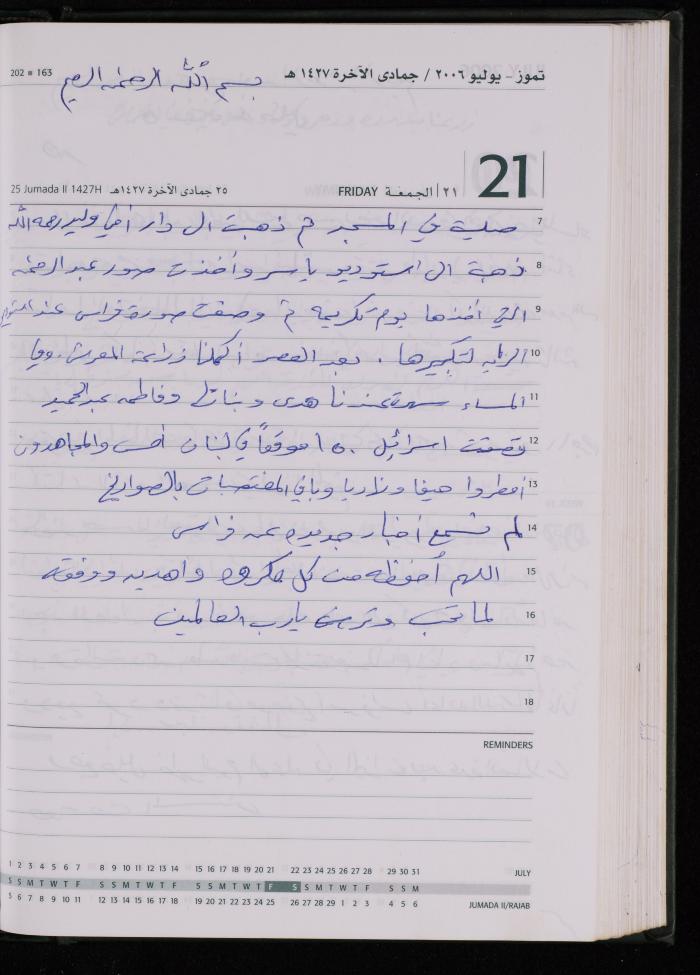 202 ■ 163
تموز - يوليو ٢٠٠٦ / جمادى الآخرة ١٤٢٧ هـ
بسم الله الرحمن الرحيم
21
25 Jumada II 1427H ٢٥ جمادى الآخرة ١٤٢٧هـ
FRIDAY الجمعة | ٢١
7 صليت في المسجد ثم ذهبت الى دار أخي وليد رحمه الله
8 ذهبت الى استوديو ياسر وأخذت صور عبد الرحمن
9 التي أخذها يوم تكريمه ثم وضعت صورة فراس عند
10 الرايه لتكبيرها . بعد العصر أكملنا زراعة المعرش . وفي
11 المساء سهرت عندنا هدى وبناتها وفاطمه عبد الحميد
12 قصفت اسرائيل ١٥٠ موقعاً في لبنان أمس والمجاهدون
13 أمطروا حيفا ونهاريا وباقي المغتصبات بالصواريخ
14 لم نسمع أخبار جديده عن فراس
15 اللهم أحفظه من كل مكروه واهديه ووفقه
16 لما تحب وترضى يارب العالمين
17
18
REMINDERS
1 2 3 4 5 6 7 8 9 10 11 12 13 14 15 16 17 18 19 20 21 22 23 24 25 26 27 28 29 30 31 JULY
S S M T W T F S S M T W T F S S M T W T F S S M T W T F S S M
5 6 7 8 9 10 11 12 13 14 15 16 17 18 19 20 21 22 23 24 25 26 27 28 29 1 2 3 4 5 6 JUMADA II/RAJAB